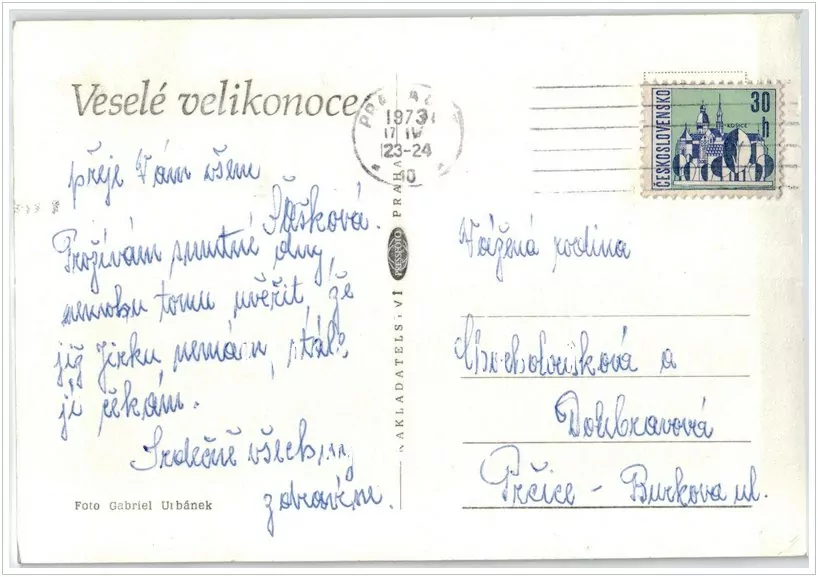 Veselé velikonoce
přeje Vám všem
Sášková.
Prožívám smutné dny,
nemohu tomu uvěřit, že
již Jirku nemám, stále
jej čekám.
Srdečně všechny
zdravím.
Foto Gabriel Urbánek
NAKLADATELSTVÍ PRESSFOTO PRAHA
1973
17 IV
23-24
ČESKOSLOVENSKO
30
h
KOŠICE
Vážená rodina
Chocholoušková a
Doubravová
Prčice - Burkova ul.